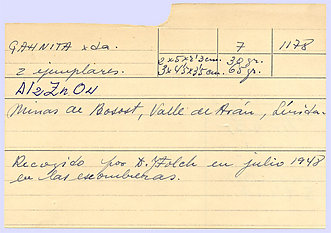 GAHNITA xda. 7 1178
2 ejemplares. 2x5x2'3cm. 30 gr.
3x4'5x3'5cm. 65 gr.
Al2ZnO4
Minas de Bosost, Valle de Arán, Lérida.
Recogido por D. J. Folch en julio 1948
en las escombreras.